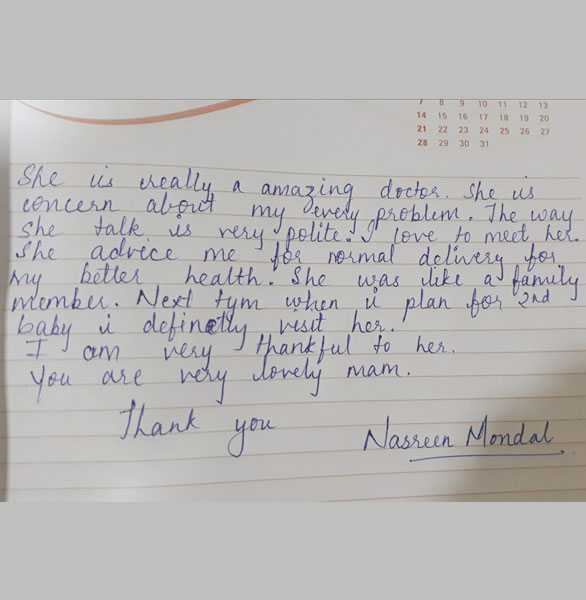 7 8 9 10 11 12 13
14 15 16 17 18 19 20
21 22 23 24 25 26 27
28 29 30 31
She is really a amazing doctor. She is
concern about my every problem. The way
she talk is very polite. I love to meet her.
She advice me for normal delivery for
my better health. She was like a family
member. Next tym when i plan for 2nd
baby i definetly visit her.
I am very thankful to her.
You are very lovely mam.
Thank you
Nasreen Mondal